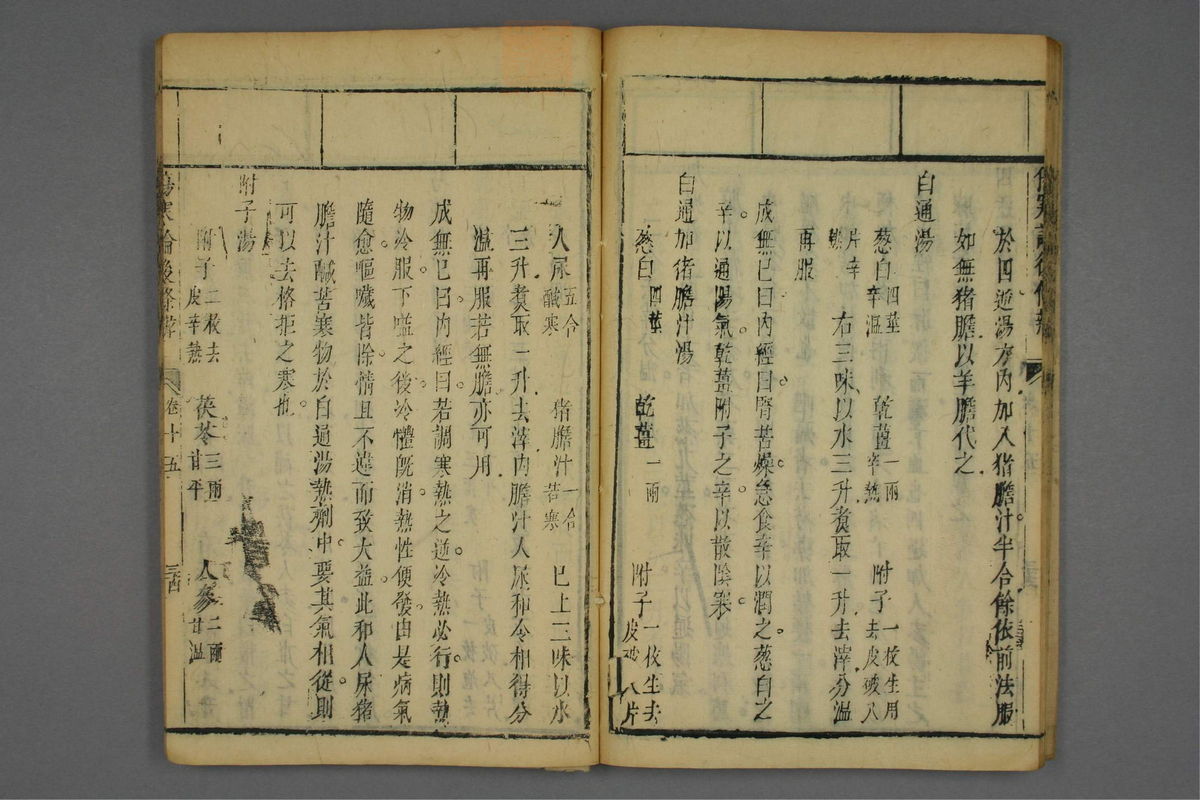 於四逆湯方內加入猪膽汁半合餘依前法服
如無猪膽以羊膽代之
白通湯
葱白四莖辛溫 乾薑一兩辛熱 附子一枚生用去皮破八
片辛熱 右三味以水三升煑取一升去滓分溫
再服
成無已曰內經曰腎苦燥急食辛以潤之葱白之
辛以通陽氣乾薑附子之辛以散陰寒
白通加猪膽汁湯
葱白四莖 乾薑一兩 附子一枚生去皮破八片
人尿五合鹹寒 猪膽汁一合苦寒 已上三味以水
三升煑取一升去滓內膽汁人尿和令相得分
溫再服若無膽亦可用
成無已曰內經曰若調寒熱之逆冷熱必行則熱
物冷服下嗌之後冷體旣消熱性便發由是病氣
隨愈嘔噦皆除情且不違而致大益此和人尿猪
膽汁鹹苦寒物於白通湯熱劑中要其氣相從則
可以去格拒之寒也
附子湯
附子二枚去皮辛熱 茯苓三兩甘平 人參二兩甘溫
傷寒論後條辨 卷十五 三四